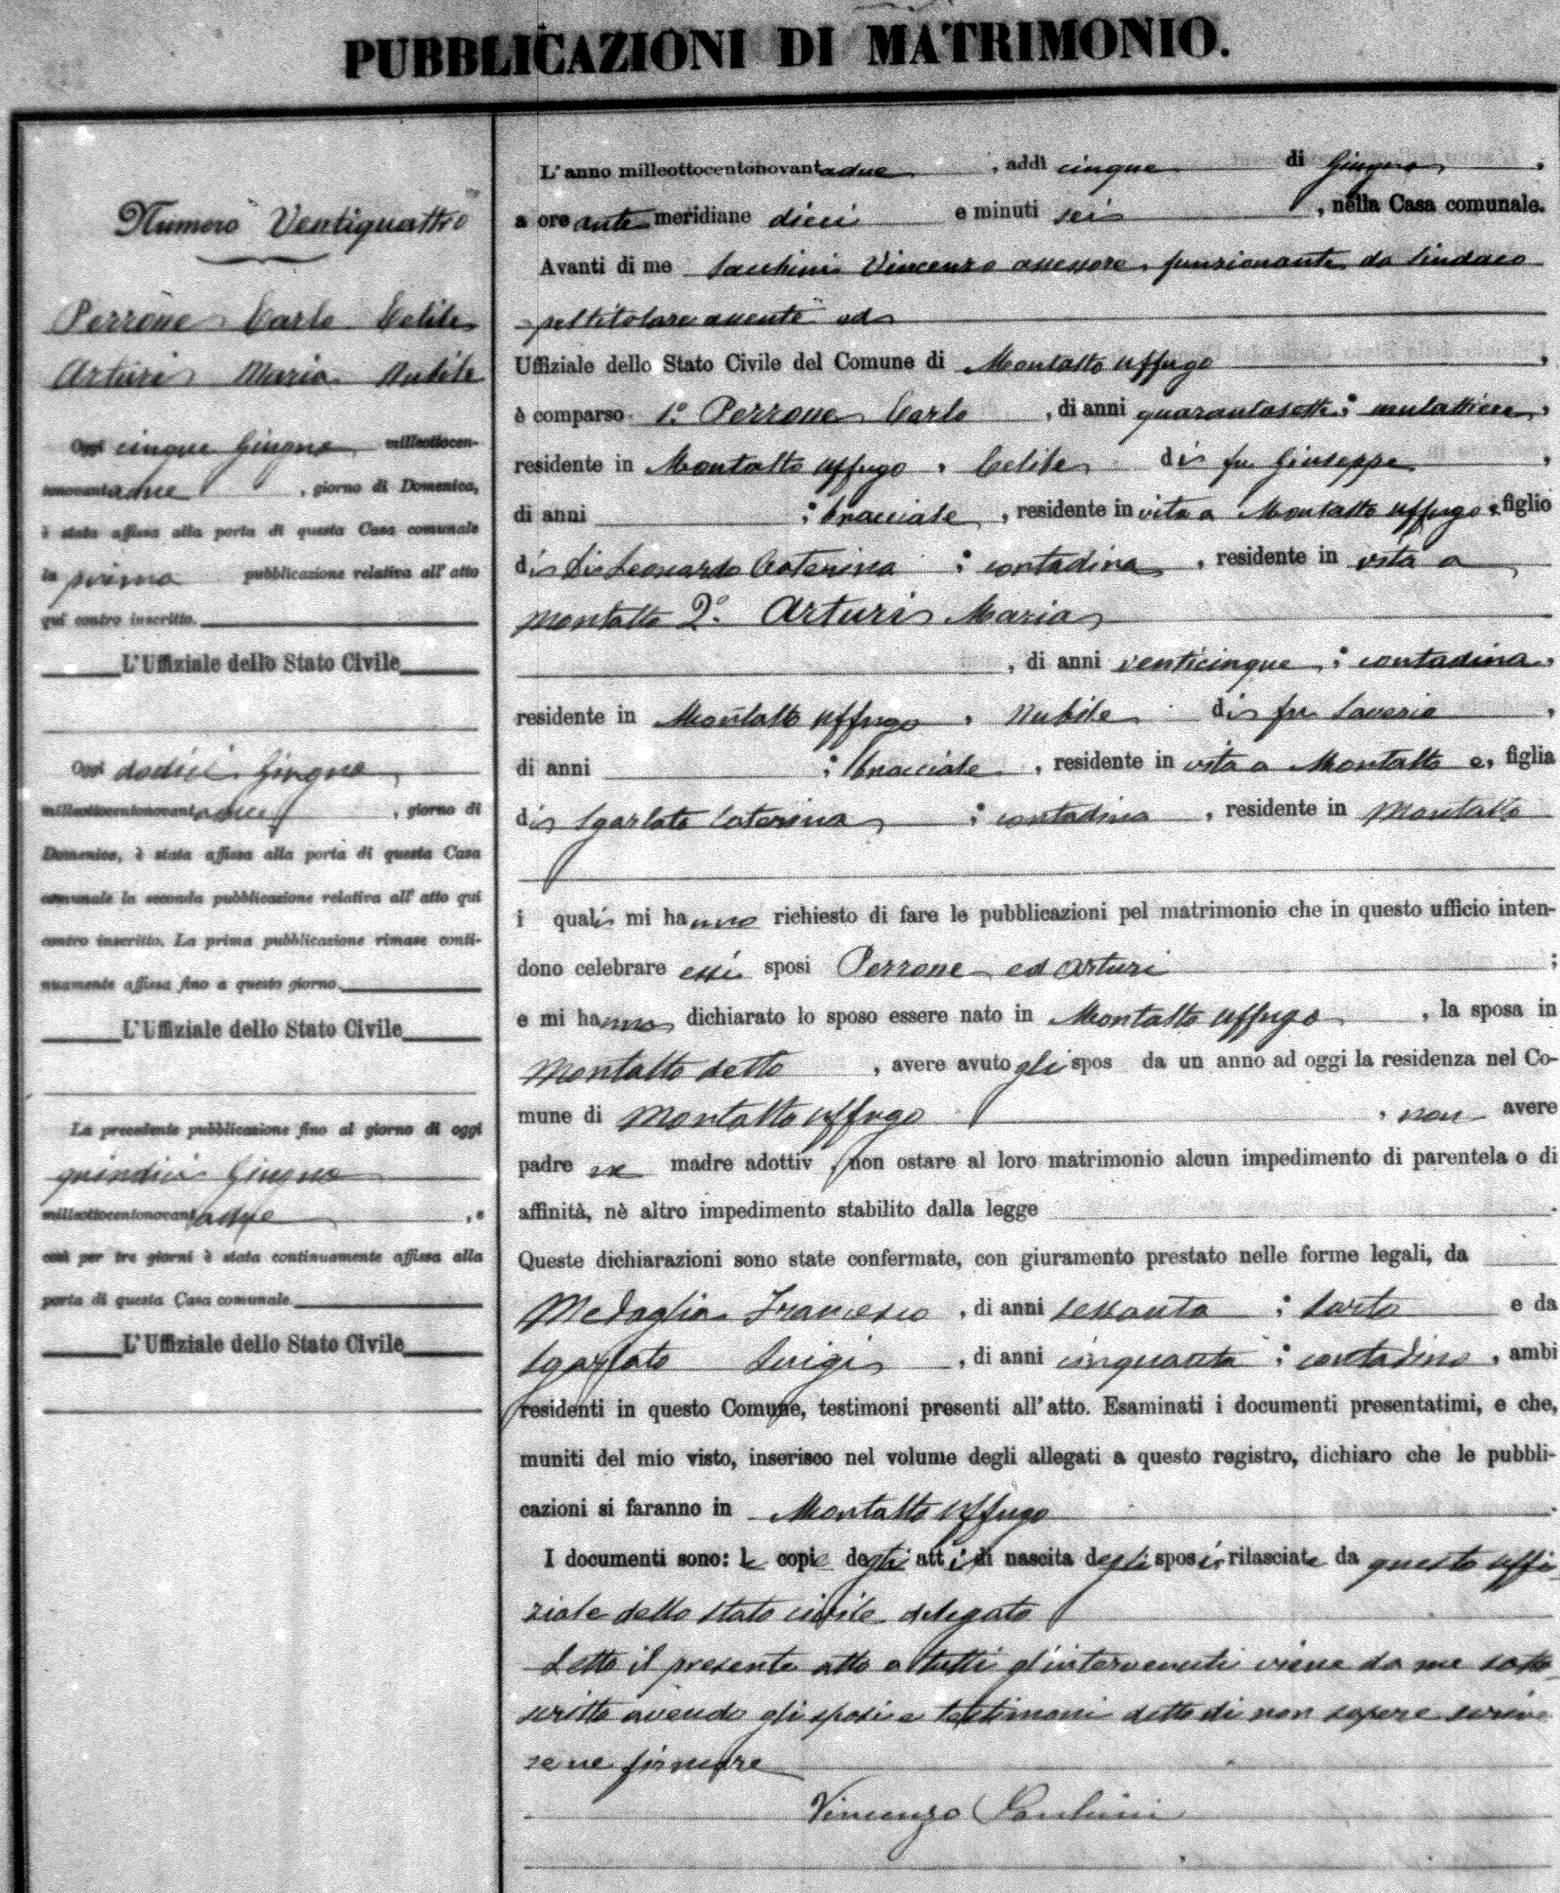 PUBBLICAZIONI DI MATRIMONIO.
Numero Ventiquattro
Perrone Carlo Celibe
Arturi Maria Nubile
Oggi cinque Giugno milleottocen-
tonovantadue, giorno di Domenica,
è stata affissa alla porta di questa Casa comunale
la prima pubblicazione relativa all' atto
qui contro inscritto.
L'Uffiziale dello Stato Civile
Oggi dodici Giugno
milleottocentonovantadue, giorno di
Domenica, è stata affissa alla porta di questa Casa
comunale la seconda pubblicazione relativa all' atto qui
contro inscritto. La prima pubblicazione rimase conti-
nuamente affissa fino a questo giorno.
L'Uffiziale dello Stato Civile
La precedente pubblicazione fino al giorno di oggi
quindici Giugno
milleottocentonovantadue, e
così per tre giorni è stata continuamente affissa alla
porta di questa Casa comunale.
L'Uffiziale dello Stato Civile
L'anno milleottocentonovantadue, addì cinque di Giugno,
a ore ante meridiane dieci e minuti sei, nella Casa comunale.
Avanti di me Sacchini Vincenzo assessore funzionante da Sindaco
pel titolare assente ed
Uffiziale dello Stato Civile del Comune di Montalto Uffugo,
è comparso 1º Perrone Carlo, di anni quarantasette; mulattiere,
residente in Montalto Uffugo, Celibe di fu Giuseppe,
di anni ; bracciale, residente in vita a Montalto Uffugo e, figlio
di Di Leonardo Caterina; contadina, residente in vita a
Montalto 2º Arturi Maria
, di anni venticinque; contadina,
residente in Montalto Uffugo, Nubile di fu Saverio,
di anni ; bracciale, residente in vita a Montalto e, figlia
di Sgarlato Caterina; contadina, residente in Montalto
i quali mi hanno richiesto di fare le pubblicazioni pel matrimonio che in questo ufficio inten-
dono celebrare essi sposi Perrone ed Arturi;
e mi hanno dichiarato lo sposo essere nato in Montalto Uffugo, la sposa in
Montalto detto, avere avuto gli spos da un anno ad oggi la residenza nel Co-
mune di Montalto Uffugo, non avere
padre ne madre adottiv, non ostare al loro matrimonio alcun impedimento di parentela o di
affinità, nè altro impedimento stabilito dalla legge.
Queste dichiarazioni sono state confermate, con giuramento prestato nelle forme legali, da
Medaglia Francesco, di anni sessanta; sarto e da
Sgarlato Luigi, di anni cinquanta; contadino, ambi
residenti in questo Comune, testimoni presenti all' atto. Esaminati i documenti presentatimi, e che,
muniti del mio visto, inserisco nel volume degli allegati a questo registro, dichiaro che le pubbli-
cazioni si faranno in Montalto Uffugo.
I documenti sono: le copie degli atti di nascita degli sposi rilasciate da questo uffi
ziale dello stato civile delegato
Letto il presente atto a tutti gl'intervenuti viene da me sotto
scritto avendo gli sposi e testimoni detto di non sapere scrive
re ne firmare
Vincenzo Sacchini